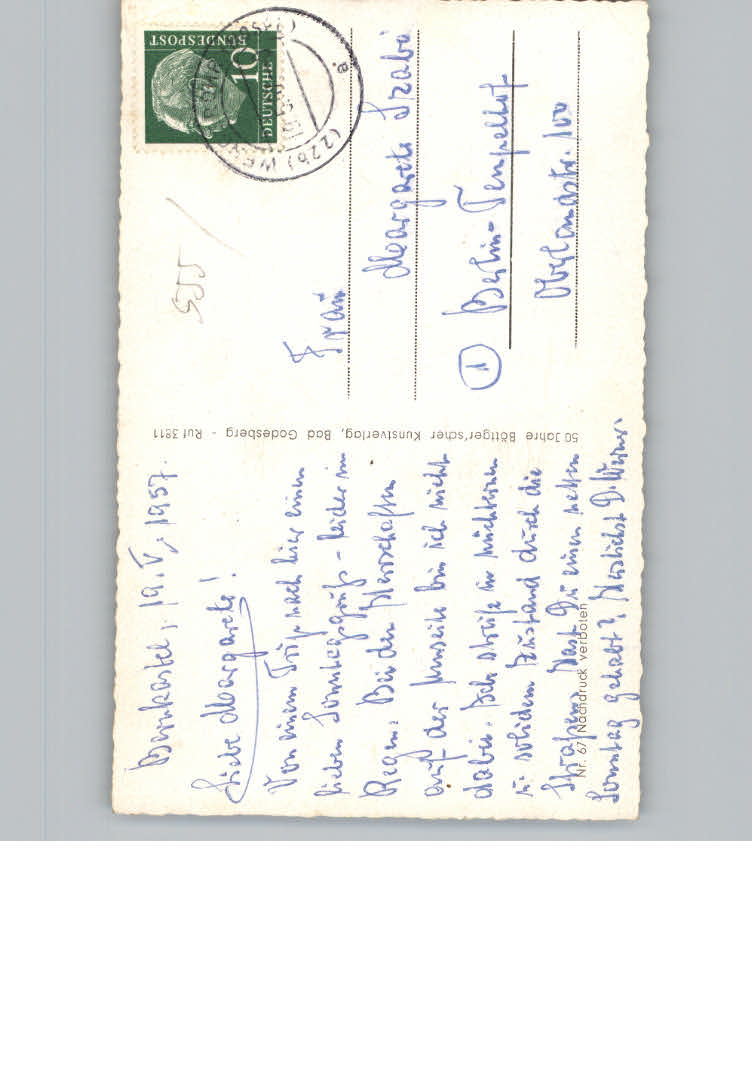 Bernkastel, 19.V.1957.
Liebe Margarete!
Von einem Trip nach hier einen
lieben Sonntagsgruß - leider im
Regen. Bei den Herrschaften
auf der Umseite bin ich nicht
dabei. Ich streife in nüchternem
u. solidem Zustand durch die
Straßen. Hast Du einen netten
Sonntag gehabt? Herzlichst D. Werner
Nr. 67 Nachdruck verboten
50 Jahre Böttger'scher Kunstverlag, Bad Godesberg - Ruf 3811
DEUTSCHE
BUNDESPOST
10
(22b)
e
555
Frau
Margarete Szabó
1 Berlin-Tempelhof
Oberlandstr. 100